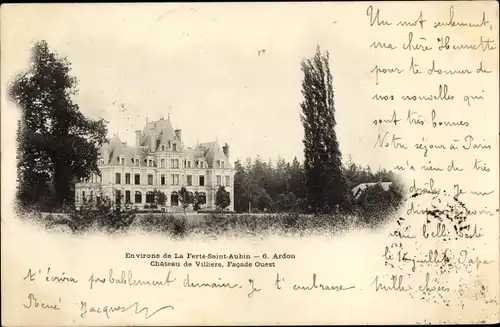 Un mot seulement,
ma chère Henriette
pour te donner de
nos nouvelles qui
sont très bonnes
Notre séjour à Paris
n'a rien de très
drôle. Je
belle
le 14 juillet. Papa
t'écrira probablement demain. Je t'embrasse. Mille choses
René Jacques
Environs de La Ferté-Saint-Aubin — 6. Ardon
Château de Villiers, Façade Ouest